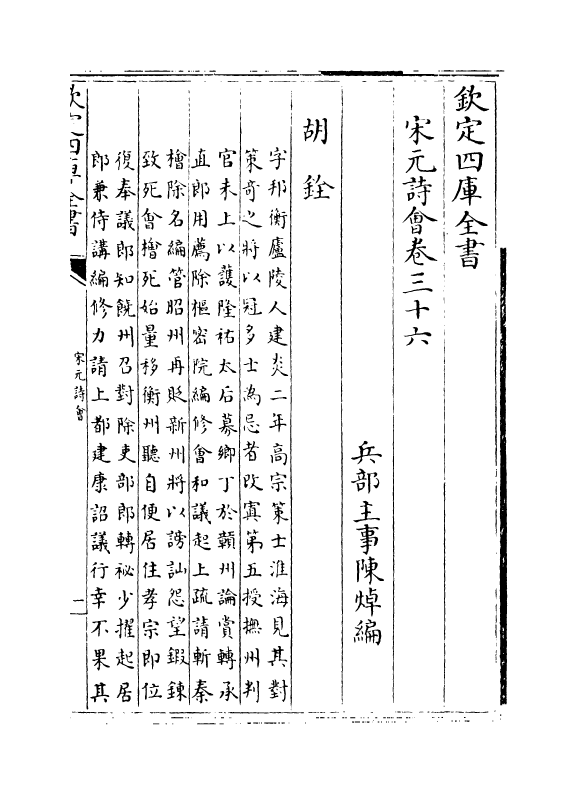 欽定四庫全書
宋元詩會卷三十六
兵部主事陳焯編
胡銓
字邦衡廬陵人建炎二年高宗策士淮海見其對
策竒之將以冠多士為忌者改寘第五授撫州判
官未上以護隆祐太后募鄉丁於贛州論賞轉承
直郎用薦除樞密院編修會和議起上疏請斬秦
檜除名編管昭州再貶新州將以謗訕怨望鍜鍊
致死會檜死始量移衡州聽自便居住孝宗即位
復奉議郎知饒州召對除吏部郎轉祕少擢起居
郎兼侍講編修力請上都建康詔議行幸不果其
欽定四庫全書
宋元詩會
一